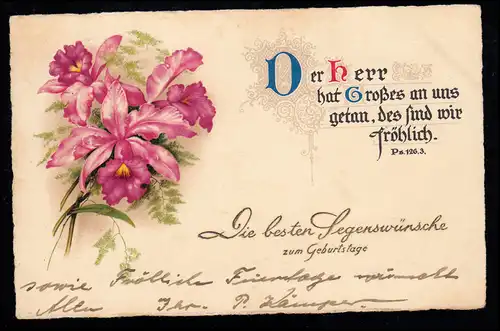 Der Herr
hat Großes an uns
getan, des sind wir
fröhlich.
Ps. 126.3.
Die besten Segenswünsche
zum Geburtstage
sowie Fröhliche Feiertage wünscht
Allen Ihr P.